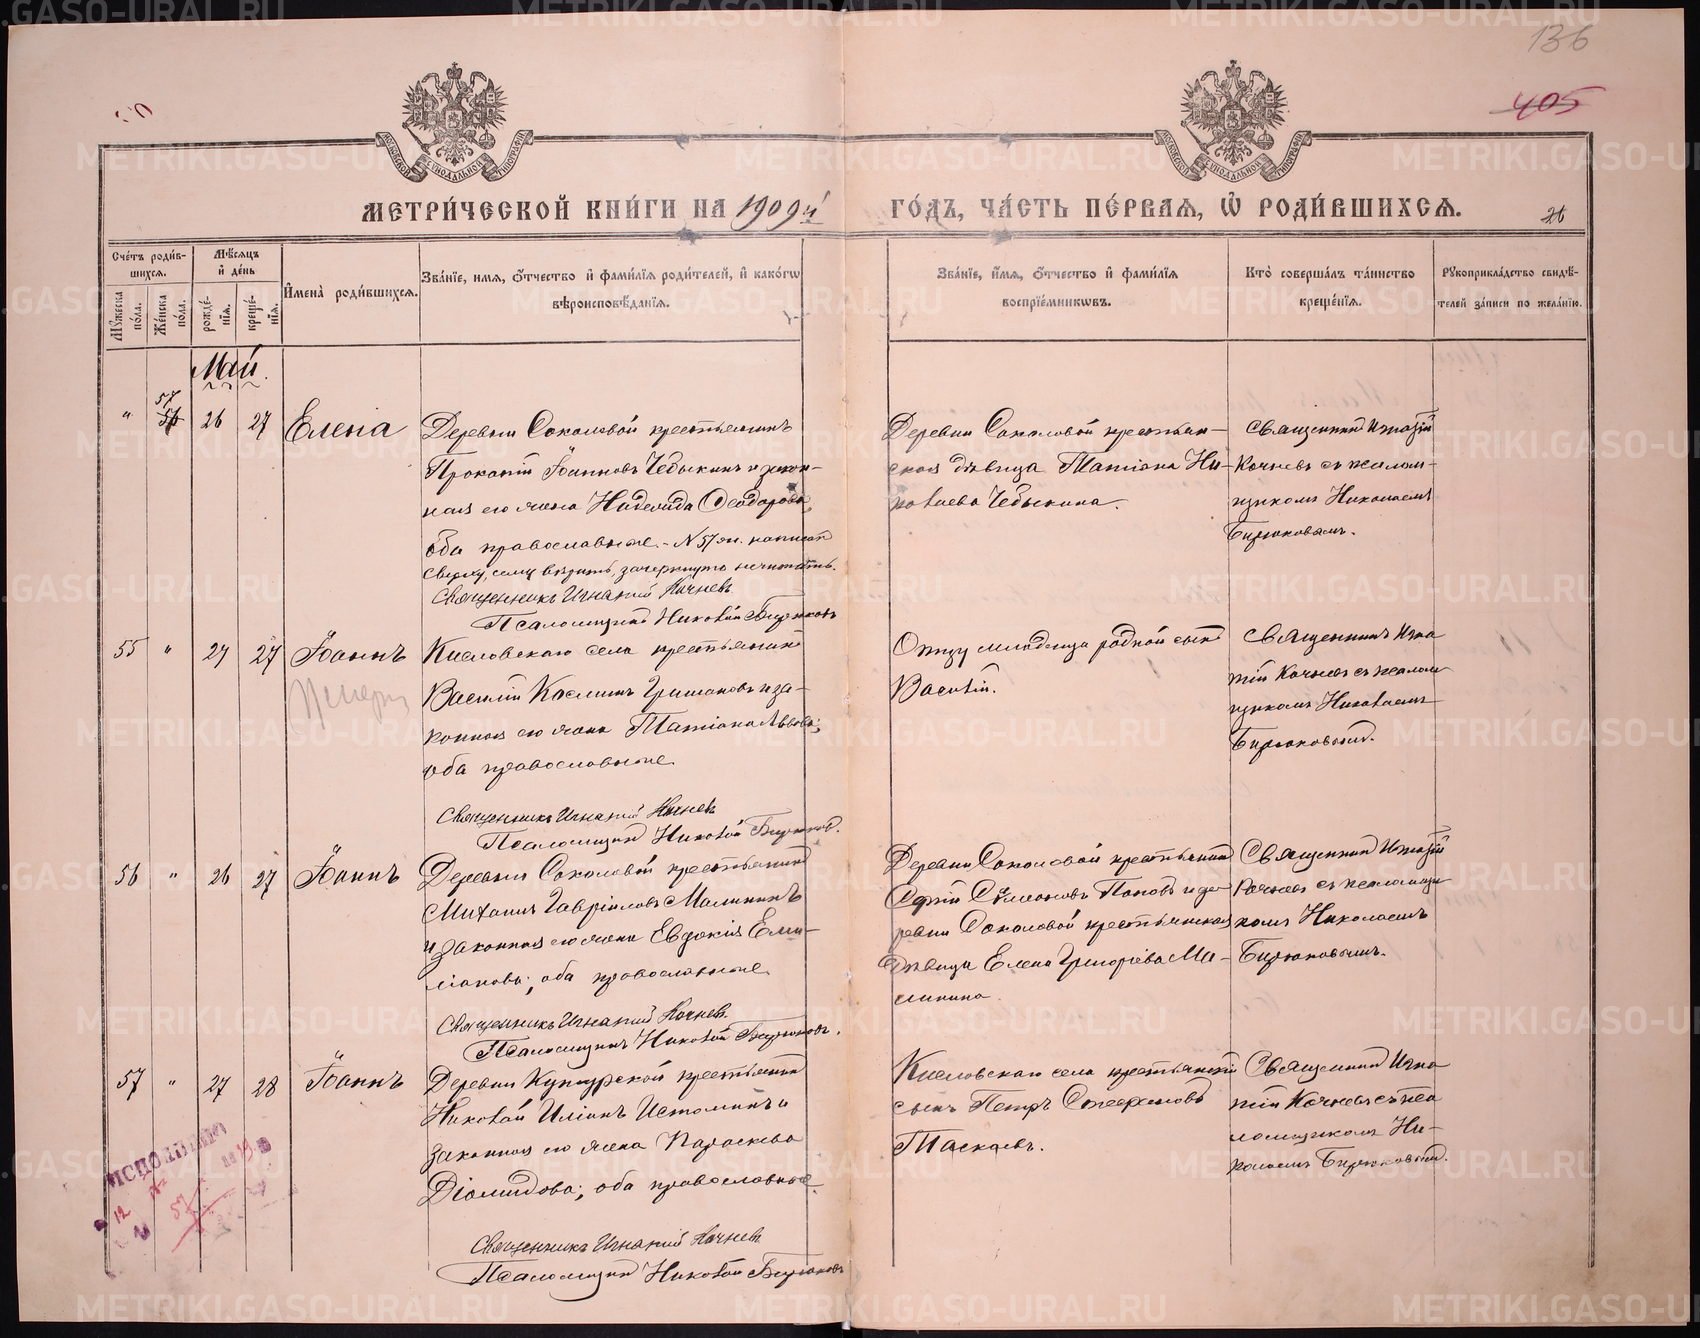 136
405
МЕТРИ́ЧЕСКОЙ КНИ́ГИ НА 1909й ГО́ДЪ, ЧА́СТЬ ПЕ́РВАЯ, Ѡ РОДИ́ВШИХСЯ.
26
Сче́тъ роди́в-
шихся.
Мѣ́сяцъ
и де́нь
Му́жеска
по́ла.
Же́нска
по́ла.
рожде́-
нїя.
креще́-
нїя.
Имена̀ роди́вшихся.
Зва́нїе, имя, о́тчество и фами́лїя роди́телей, и како́гѡ
вѣроисповѣ́данїя.
Зва́нїе, и́мя, о́тчество и фами́лїя
воспрїе́мникѡвъ.
Кто̀ соверша́лъ та́инство
креще́нїя.
Рꙋкоприкла́дство свидѣ́-
телей за́писи по жела́нїю.
Май.
" 57 56 26 27 Елена
Деревни Соколовой крестьянинъ
Прокопій Іоанновъ Чебыкинъ и закон-
ная его жена Надежда Ѳеодорова,
оба православные. - N 57 жн. написан
сверху, сему вѣрить, зачеркнуто не читать.
Священникъ Игнатій Кочневъ
Псаломщикъ Николай Бирюковъ
Деревни Соколовой крестьян-
ская дѣвица Татіана Ни-
колаева Чебыкина.
Священник Игнатій
Кочневъ съ псалом-
щикомъ Николаемъ
Бирюковымъ.
55 " 27 27 Іоаннъ
Кисловскаго села крестьянинъ
Василій Косминъ Гришановъ и за-
конная его жена Татіана Львова;
оба православные.
Священникъ Игнатій Кочневъ
Псаломщикъ Николай Бирюков.
Отцу младенца родной сын
Василій.
Священникъ Игна
тій Кочневъ съ псалом
щикомъ Николаемъ
Бирюковымъ.
56 " 26 27 Іоаннъ
Деревни Соколовой крестьянинъ
Михаилъ Гавріиловъ Малининъ
и законная его жена Евдокія Еми-
ліанова; оба православные.
Священникъ Игнатій Кочневъ.
Псаломщикъ Николай Бирюковъ.
Деревни Соколовой крестьянинъ
Сергій Сѵмеоновъ Поповъ и де-
ревни Соколовой крестьянская
дѣвица Елена Григоріева Ма-
линина.
Священник Игнатій
Кочневъ съ псаломщи
комъ Николаемъ
Бирюковымъ.
57 " 27 28 Іоаннъ
Деревни Кунгурской крестьянинъ
Николай Иліинъ Истоминъ и
законная его жена Параскева
Діомидова; оба православные.
Священникъ Игнатій Кочневъ
Псаломщикъ Николай Бирюковъ
Кисловскаго села крестьянскій
сынъ Петръ Стефановъ
Таскаевъ.
Священник Игна
тій Кочневъ съ пса
ломщикомъ Ни-
колаемъ Бирюковымъ.
ИСПОЛНЕНО
12
57
METRIKI.GASO-URAL.RU